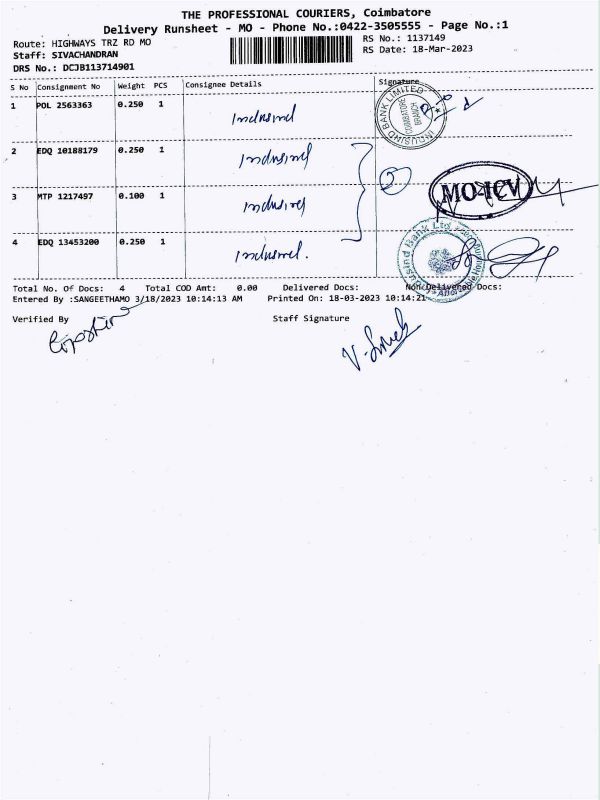 THE PROFESSIONAL COURIERS, Coimbatore
Delivery Runsheet - MO - Phone No.:0422-3505555 - Page No.:1
Route: HIGHWAYS TRZ RD MO
RS No.: 1137149
Staff: SIVACHANDRAN
RS Date: 18-Mar-2023
DRS No.: DCJB113714901
S No Consignment No Weight PCS Consignee Details Signature
1 POL 2563363 0.250 1 Indusind
INDUSIND BANK LIMITED
COIMBATORE
BRANCH
2 EDQ 10188179 0.250 1 Indusind
3 MTP 1217497 0.100 1 Indusind
MO-ICV
4 EDQ 13453200 0.250 1 Indusind.
Total No. Of Docs: 4 Total COD Amt: 0.00 Delivered Docs: Non Delivered Docs:
Entered By :SANGEETHAMO 3/18/2023 10:14:13 AM Printed On: 18-03-2023 10:14:21
Verified By Staff Signature